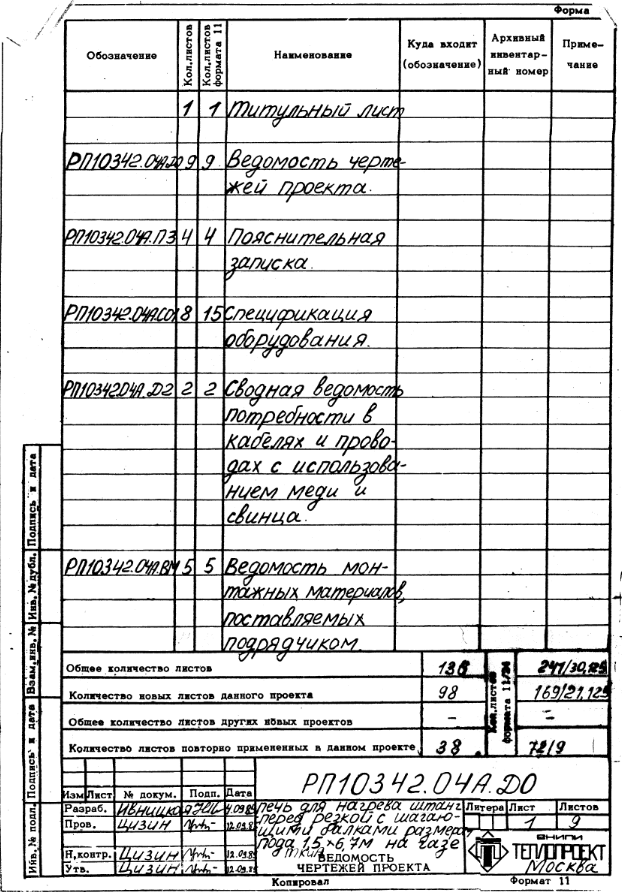 Форма
Обозначение Кол.листов Кол.листов формата 11 Наименование Куда входит (обозначение) Архивный инвентар-ный номер Приме-чание
1 1 Титульный лист
РП10342.04А.ДО 9 9 Ведомость черте-
жей проекта.
РП10342.04А.ПЗ 4 4 Пояснительная
записка.
РП10342.04А.СО1 8 15 Спецификация
оборудования.
РП10342.04А.Д2 2 2 Сводная ведомость
потребности в
кабелях и прово-
дах с использова-
нием меди и
свинца.
РП10342.04А.ВМ 5 5 Ведомость мон-
тажных материалов,
поставляемых
подрядчиком.
Общее количество листов 136 Кол.листов формата 11/24
Количество новых листов данного проекта 98 169/21,125
Общее количество листов других новых проектов – –
Количество листов повторно примененных в данном проекте 38 72/9
Инв.№ подл. Подпись и дата Взам.инв.№ Инв.№ дубл. Подпись и дата
РП10342.04А.ДО
Изм Лист № докум. Подп. Дата
Разраб. Ивницкая
Пров. Цизин
Н.контр. Цизин
Утв. Цизин
Печь для нагрева штанг
перед резкой с шагаю-
щими балками размера
пода 1,5×6,7м на газе
ВЕДОМОСТЬ
ЧЕРТЕЖЕЙ ПРОЕКТА
Литера Лист Листов
1 9
ВНИПИ
ТЕПЛОПРОЕКТ
Москва
Копировал Формат 11